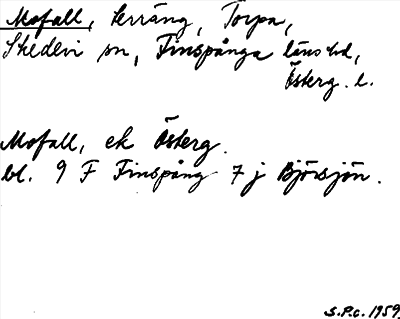 Mofall, terräng, Torpa,
Skedevi sn, Finspånga läns hd,
Österg. l.
Mofall, ek Österg.
bl. 9 F Finspång 7 j Björsjön.
S.P.c. 1959.